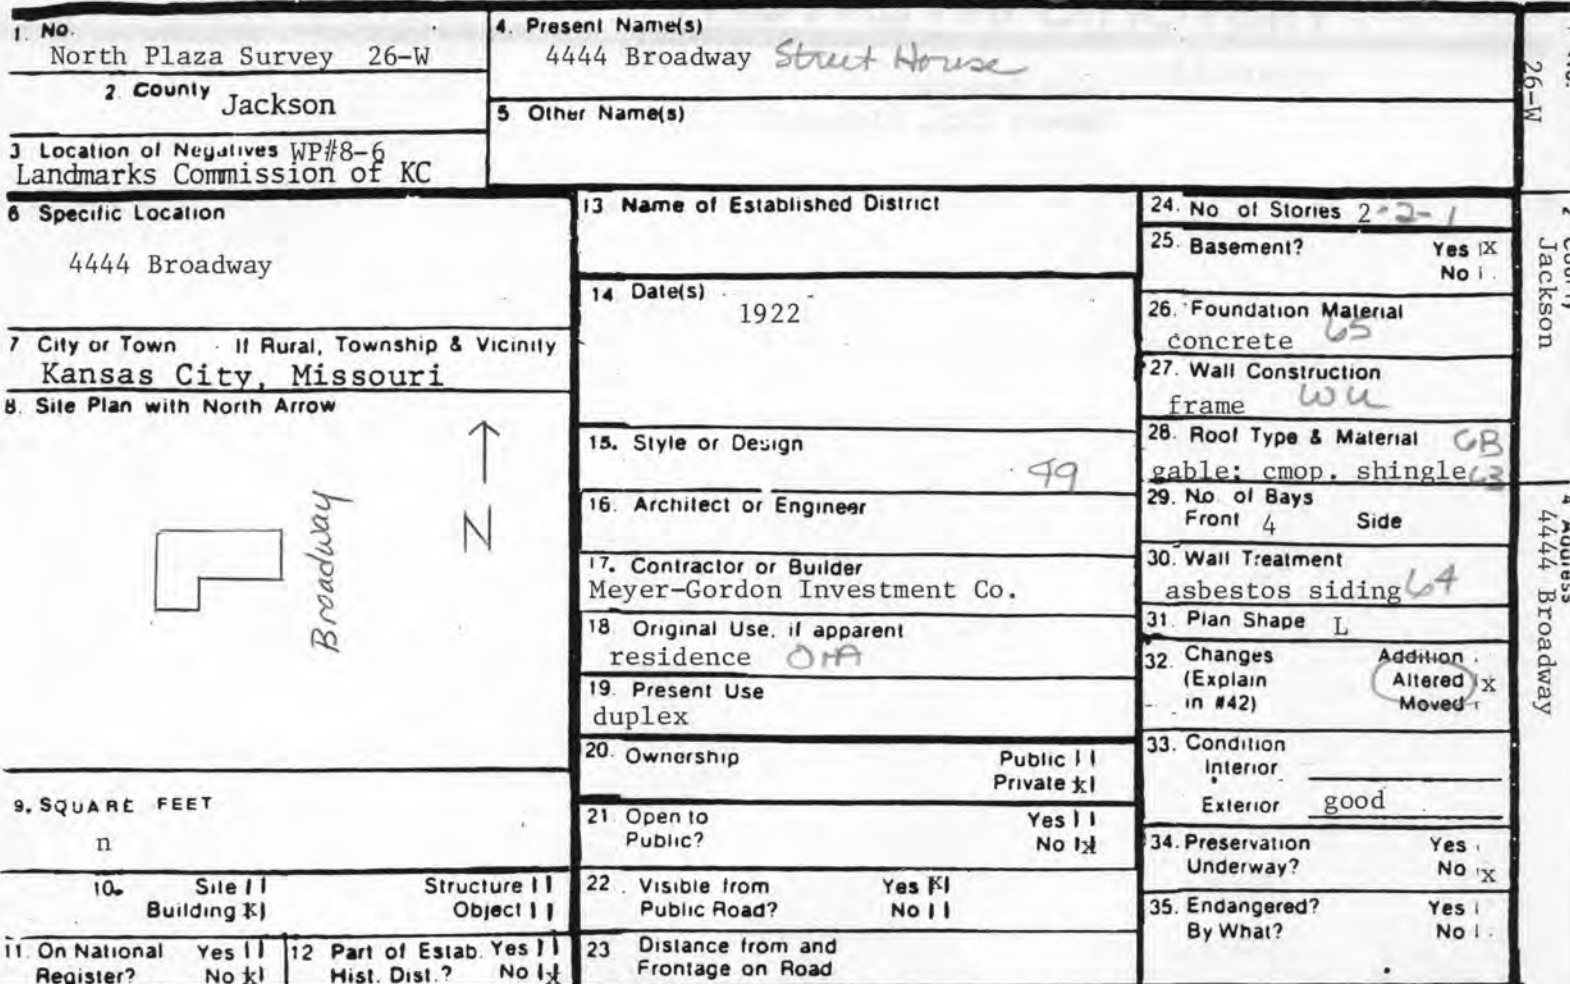 1. No.
North Plaza Survey 26-W
2 County
Jackson
3 Location of Negatives WP#8-6
Landmarks Commission of KC
4. Present Name(s)
4444 Broadway Street House
5 Other Name(s)
6 Specific Location
4444 Broadway
7 City or Town If Rural, Township & Vicinity
Kansas City, Missouri
8. Site Plan with North Arrow
Broadway
N
9. SQUARE FEET
n
10. Site Structure
Building X Object
11. On National Yes
Register? No x
12 Part of Estab. Yes
Hist. Dist.? No x
13 Name of Established District
14 Date(s)
1922
15. Style or Design
49
16. Architect or Engineer
17. Contractor or Builder
Meyer-Gordon Investment Co.
18 Original Use, if apparent
residence
19. Present Use
duplex
20. Ownership Public
Private x
21. Open to Yes
Public? No x
22. Visible from Yes X
Public Road? No
23 Distance from and
Frontage on Road
24. No of Stories 2-2-1
25. Basement? Yes X
No
26. Foundation Material
concrete 65
27. Wall Construction
frame
28. Roof Type & Material GB
gable; cmop. shingle 63
29. No. of Bays
Front 4 Side
30. Wall Treatment
asbestos siding 64
31. Plan Shape L
32. Changes Addition
(Explain Altered X
in #42) Moved
33. Condition
Interior
Exterior good
34. Preservation Yes
Underway? No X
35. Endangered? Yes
By What? No
26-W
Jackson
4 Address
4444 Broadway